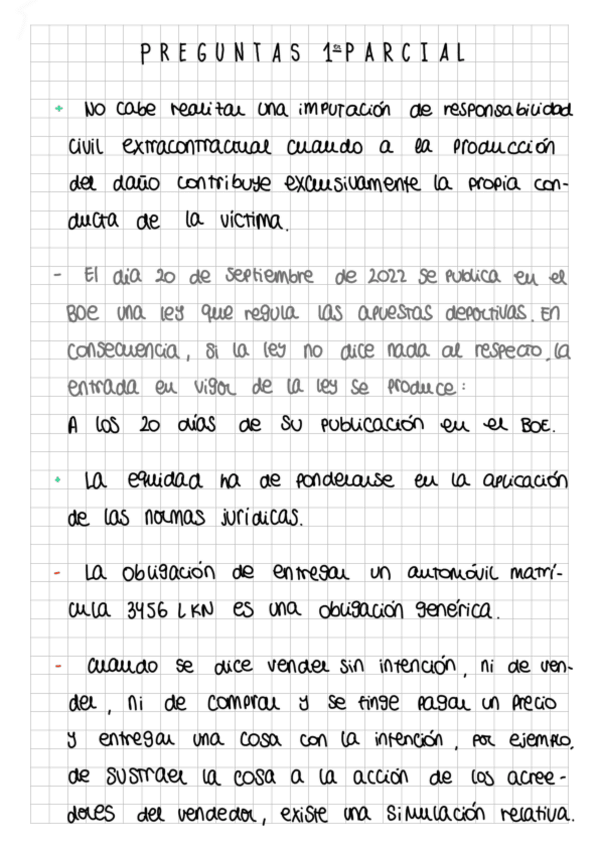 PREGUNTAS 1er PARCIAL
+ No cabe realizar una imputación de responsabilidad
civil extracontractual cuando a la producción
del daño contribuye exclusivamente la propia con-
ducta de la víctima.
- El día 20 de septiembre de 2022 se publica en el
BOE una ley que regula las apuestas deportivas. En
consecuencia, si la ley no dice nada al respecto, la
entrada en vigor de la ley se produce:
A los 20 días de su publicación en el BOE.
+ La equidad ha de ponderarse en la aplicación
de las normas jurídicas.
- La obligación de entregar un automóvil matrí-
cula 3456 LKN es una obligación genérica.
- Cuando se dice vender sin intención, ni de ven-
der, ni de comprar y se finge pagar un precio
y entregar una cosa con la intención, por ejemplo,
de sustraer la cosa a la acción de los acree-
dores del vendedor, existe una simulación relativa.